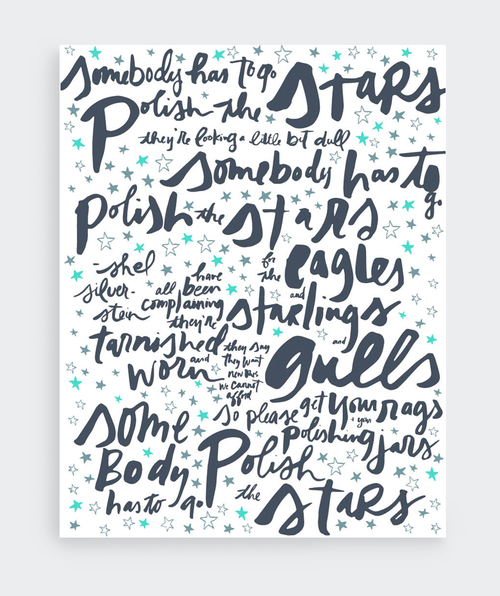 Somebody has to go
Polish the STARS
they're looking a little bit dull
Somebody has to go
polish the stars
for the eagles
and starlings
and gulls
have
all been
complaining
they're
tarnished
and worn
they say
they want
new ones
we cannot
afford
so please get your rags
+ your polishing jars
some
Body
has to go
Polish
the STARS
-shel
silver-
stein